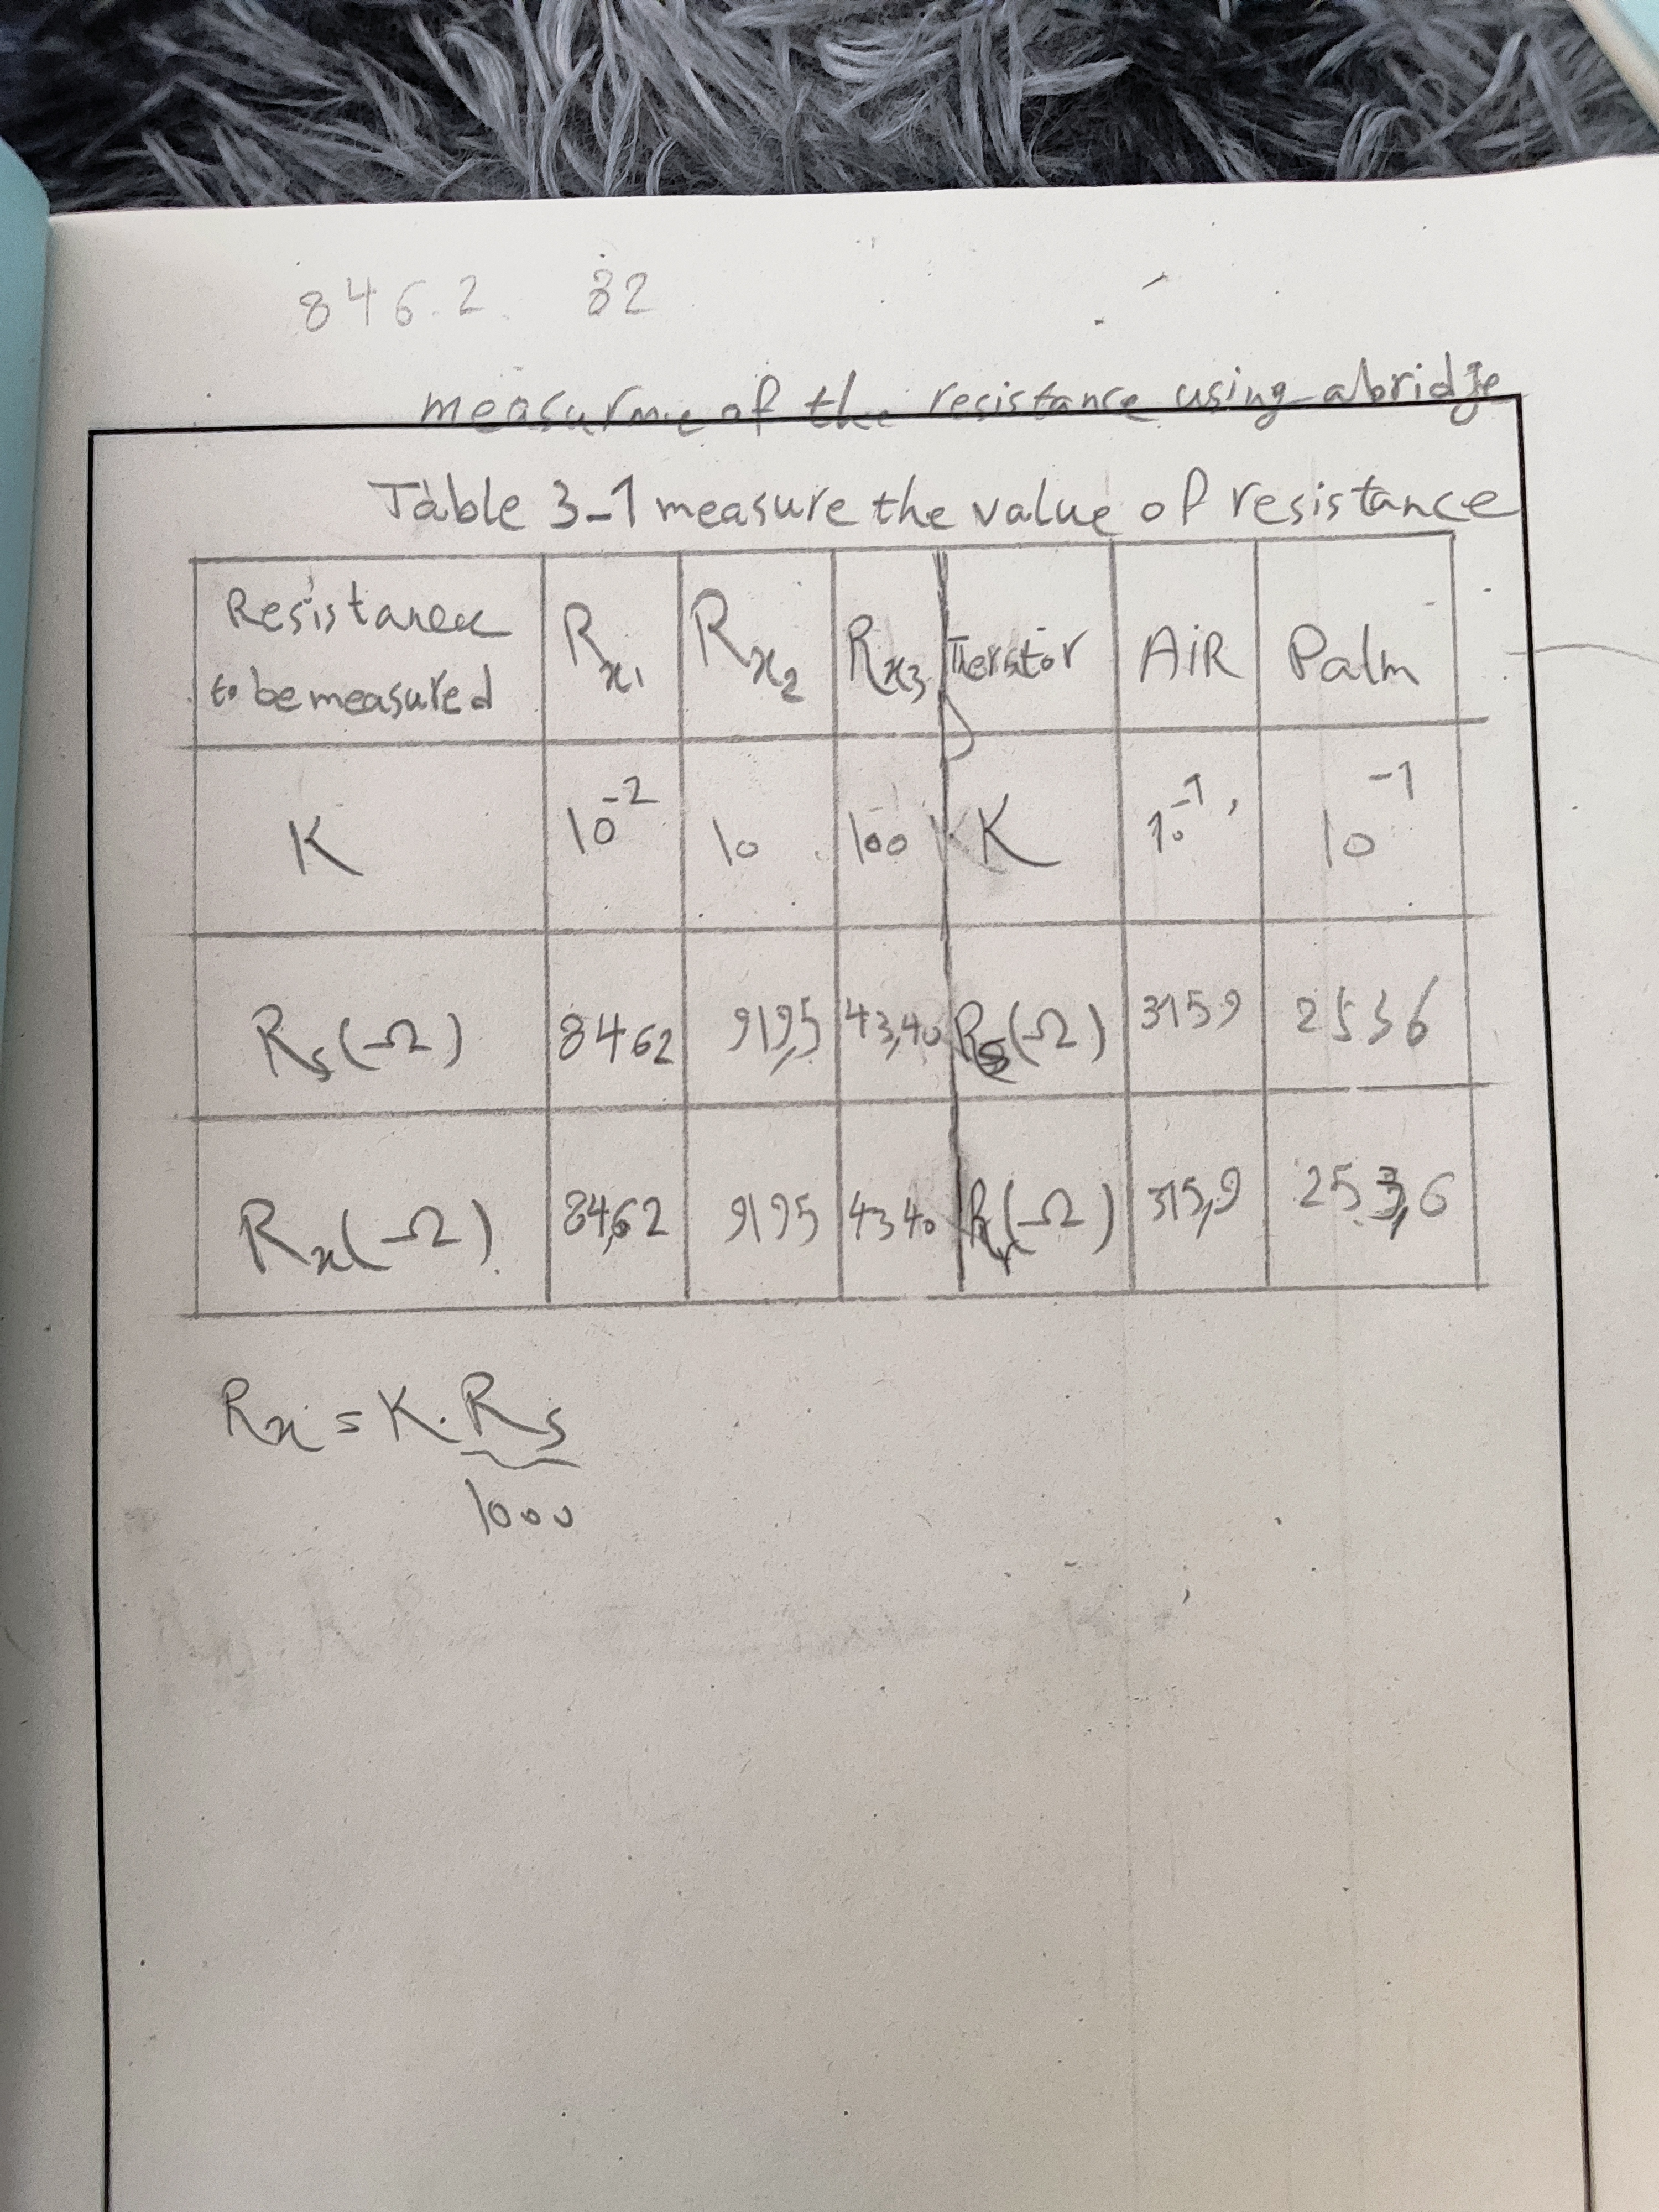 846.2 32
measurme of the resistance using abridje
Table 3-1 measure the value of resistance
Resistance to be measured Rx1 Rx2 Rx3 Terstor AiR Palm
K 10^-2 10 100 K 10^-1 10^-1
Rs(Ω) 8462 919,5 43,40 Rs(Ω) 3159 2536
Rx(Ω) 84,62 9195 4340 Rr(Ω) 315,9 253,6
Rx = K. Rs
1000